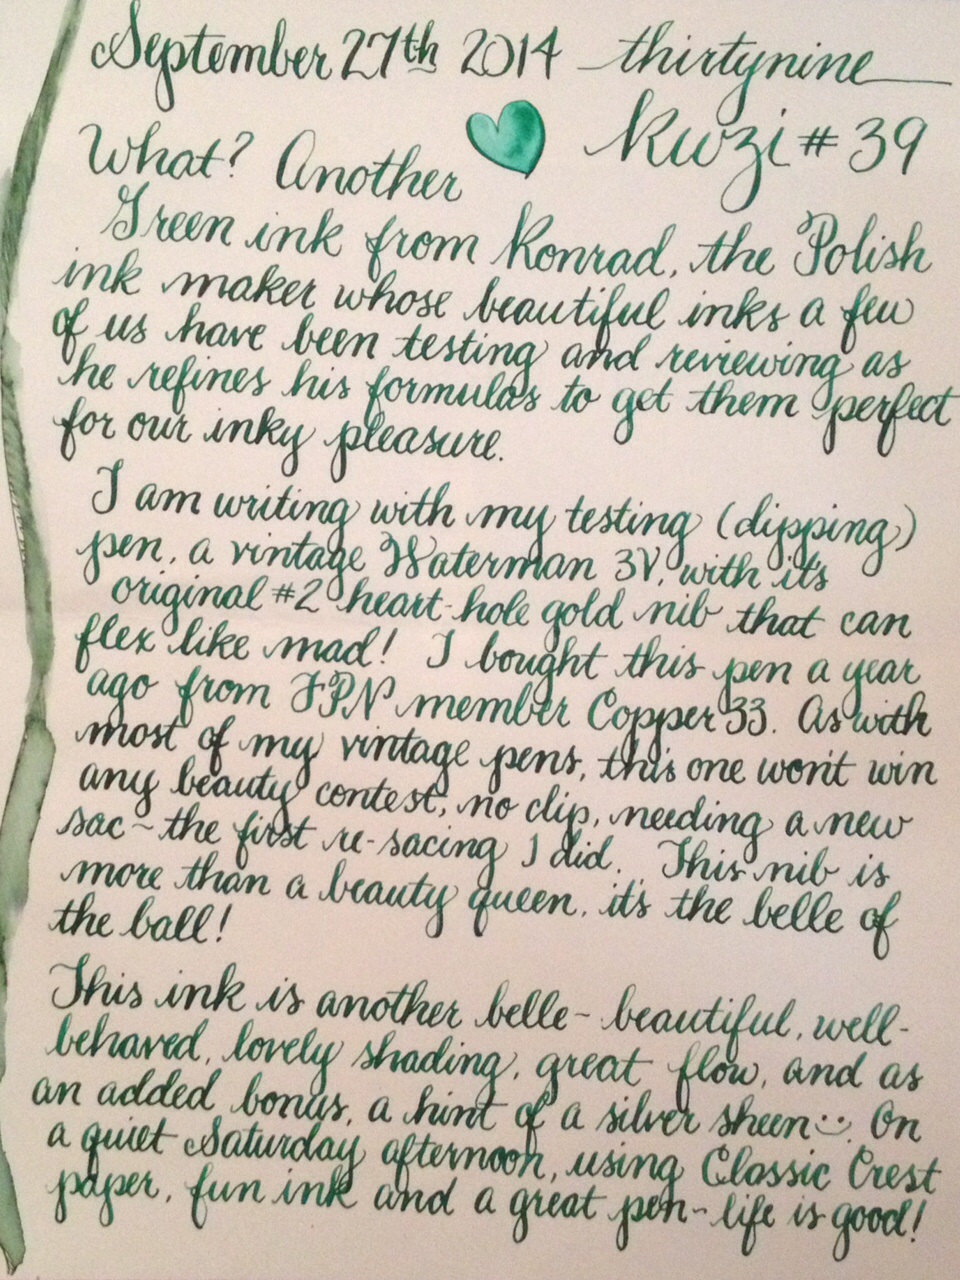 September 27th 2014 thirtynine
Kwzi # 39
What? Another
Green ink from Konrad, the Polish
ink maker whose beautiful inks a few
of us have been testing and reviewing as
he refines his formulas to get them perfect
for our inky pleasure.
I am writing with my testing (dipping)
pen, a vintage Waterman 3V, with it's
original #2 heart-hole gold nib that can
flex like mad! I bought this pen a year
ago from FPN member Copper 33. As with
most of my vintage pens, this one won't win
any beauty contest, no clip, needing a new
sac ~ the first re-sacing I did. This nib is
more than a beauty queen, it's the belle of
the ball!
This ink is another belle ~ beautiful, well-
behaved, lovely shading, great flow, and as
an added bonus, a hint of a silver sheen :-) On
a quiet Saturday afternoon, using Classic Crest
paper, fun ink and a great pen ~ life is good!